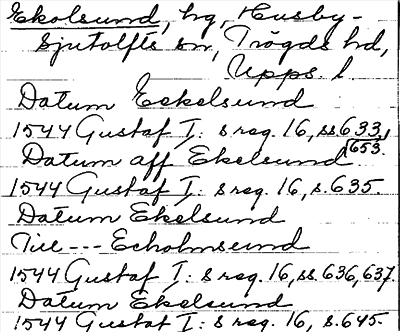 Ekolsund, hg, Husby-
Sjutolfts sn, Trögds hd,
Upps. l.
Datum Eekelsund
1544 Gustaf I: s reg. 16, ss. 633,
653.
Datum aff Ekelsund
1544 Gustaf I: s reg. 16, s. 635.
Datum Ekelsund
Till --- Echolmsund
1544 Gustaf I: s reg. 16, ss. 636, 637.
Datum Ekelsund
1544 Gustaf I: s reg. 16, s. 645.